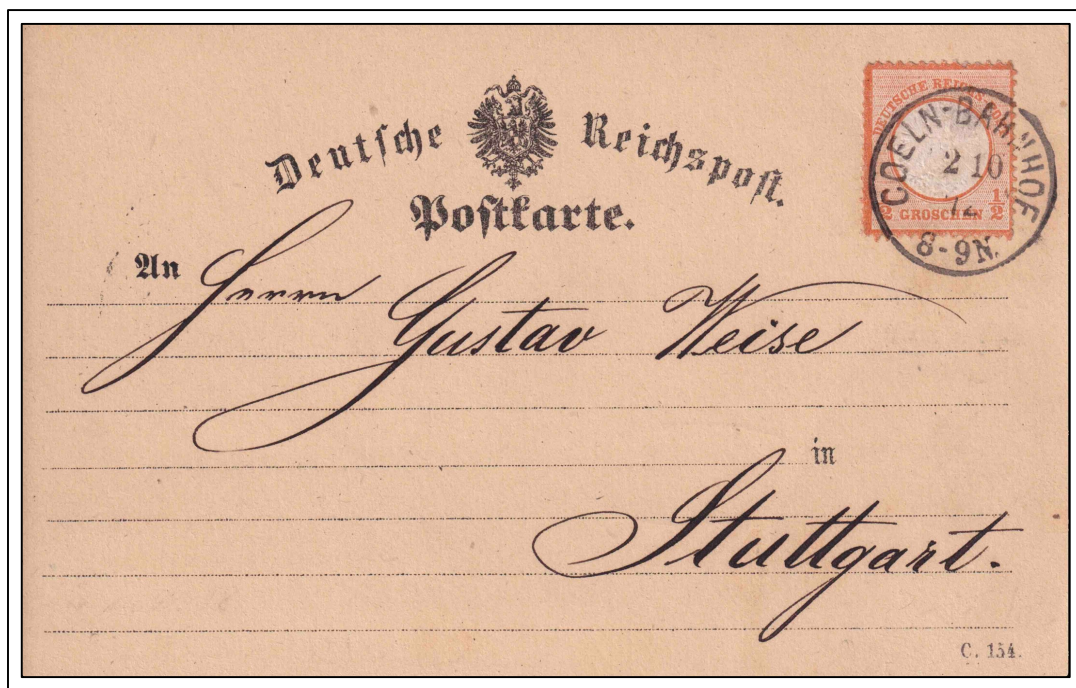 Deutsche Reichspost.
Postkarte.
DEUTSCHE REICHS-POST
½ GROSCHEN ½
COELN-BAHNHOF
2 10
72
8-9N.
An Herrn
Gustav Weise
in
Stuttgart.
C. 154.